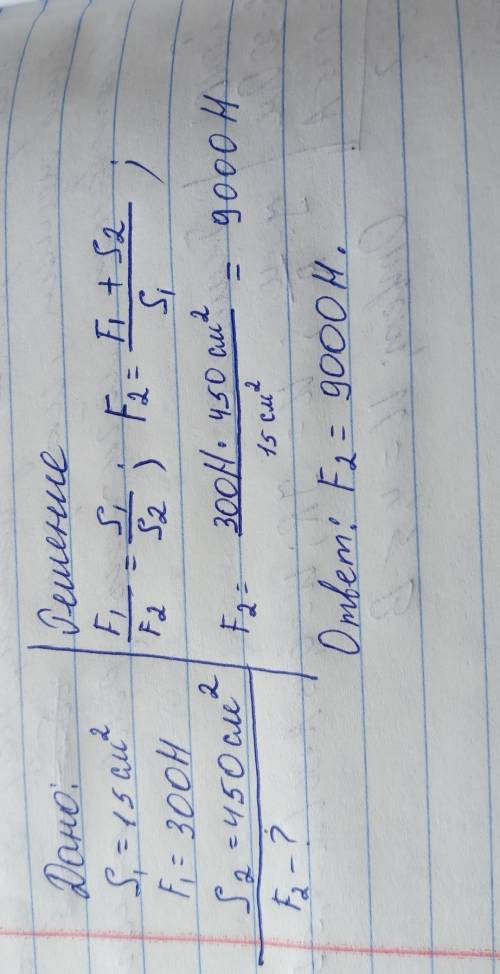 Дано:
S₁ = 15 см²
F₁ = 300Н
S₂ = 450 см²
F₂ - ?
Решение
F₁/F₂ = S₁/S₂ ; F₂ = (F₁ + S₂)/S₁ ;
F₂ = (300Н · 450 см²)/(15 см²) = 9000 Н
Ответ: F₂ = 9000Н.